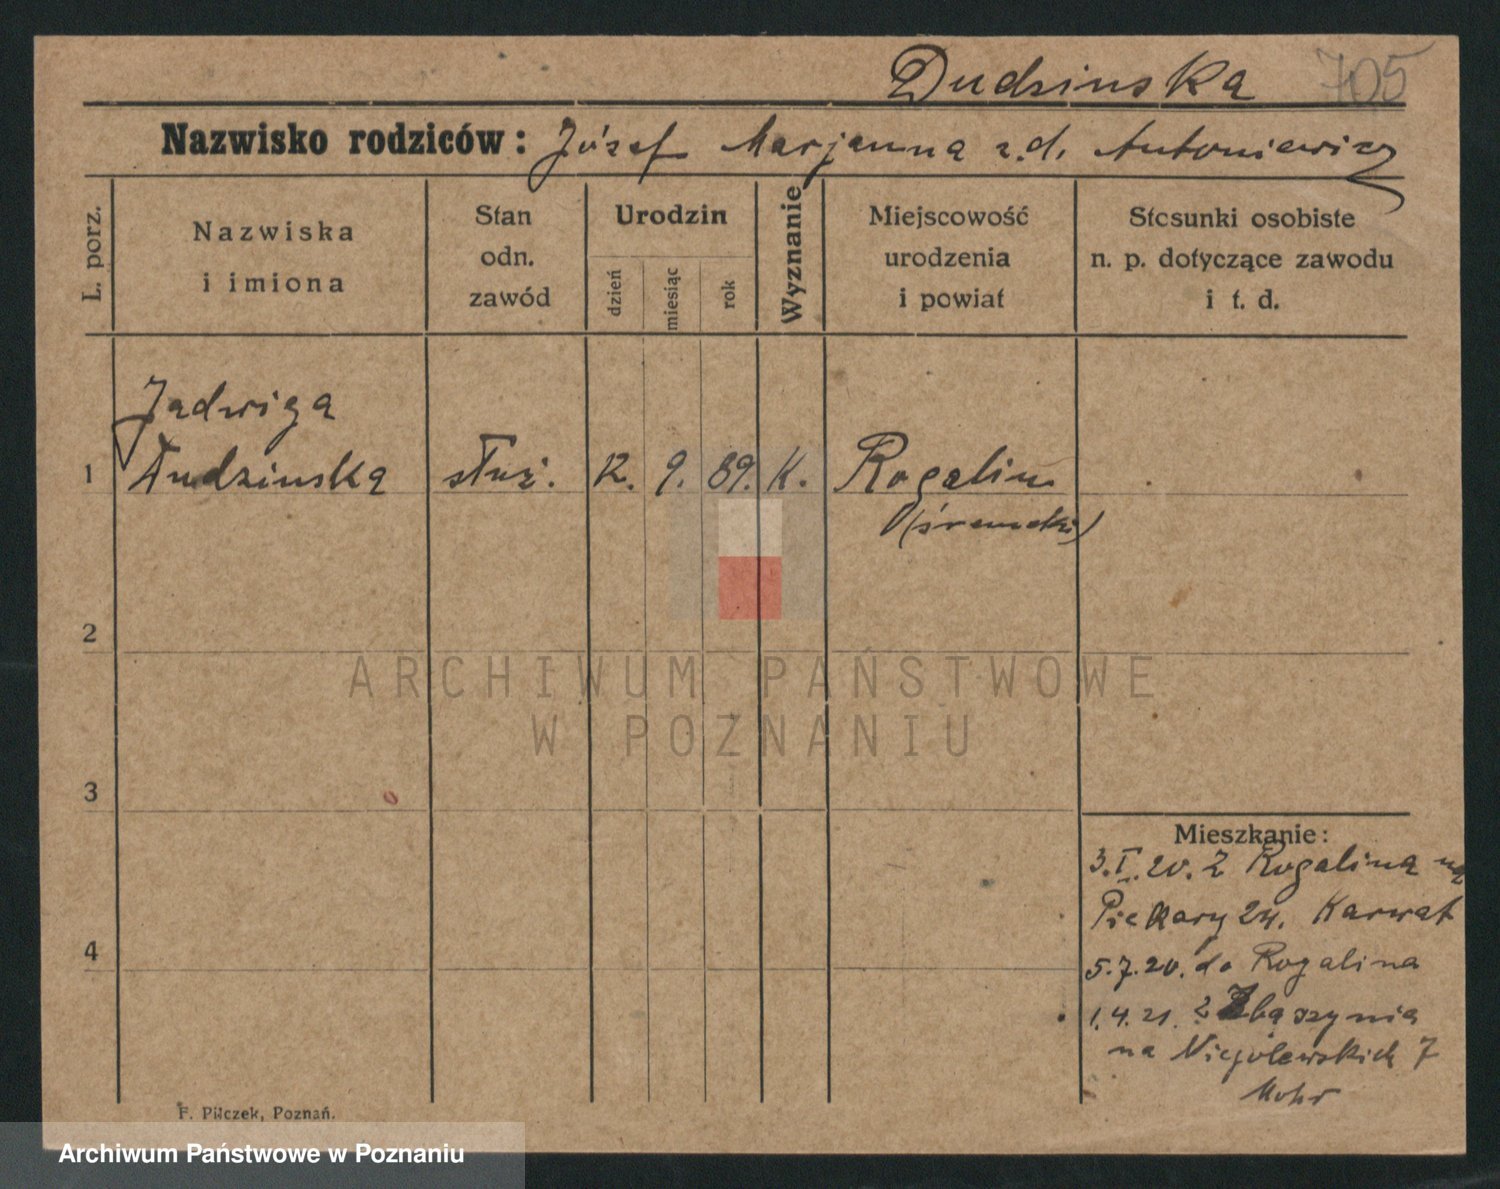 Dudzinska 705
Nazwisko rodziców: Józef Marjanna z.d. Antoniewicz
L. porz.
Nazwiska
i imiona
Stan
odn.
zawód
Urodzin
dzień
miesiąc
rok
Wyznanie
Miejscowość
urodzenia
i powiat
Stosunki osobiste
n. p. dotyczące zawodu
i t. d.
Jadwiga
1 Dudzinska służ. 12. 9. 89. K. Rogalin
(śremski)
2
3
4
Mieszkanie:
3.I.20. Z Rogalina na
Piekary 24. Karwat
5.7.20. do Rogalina
1.4.21. z Zbąszynia
na Niegolewskich 7
Mohr
F. Pilczek, Poznań.
ARCHIWUM PAŃSTWOWE
W POZNANIU
Archiwum Państwowe w Poznaniu